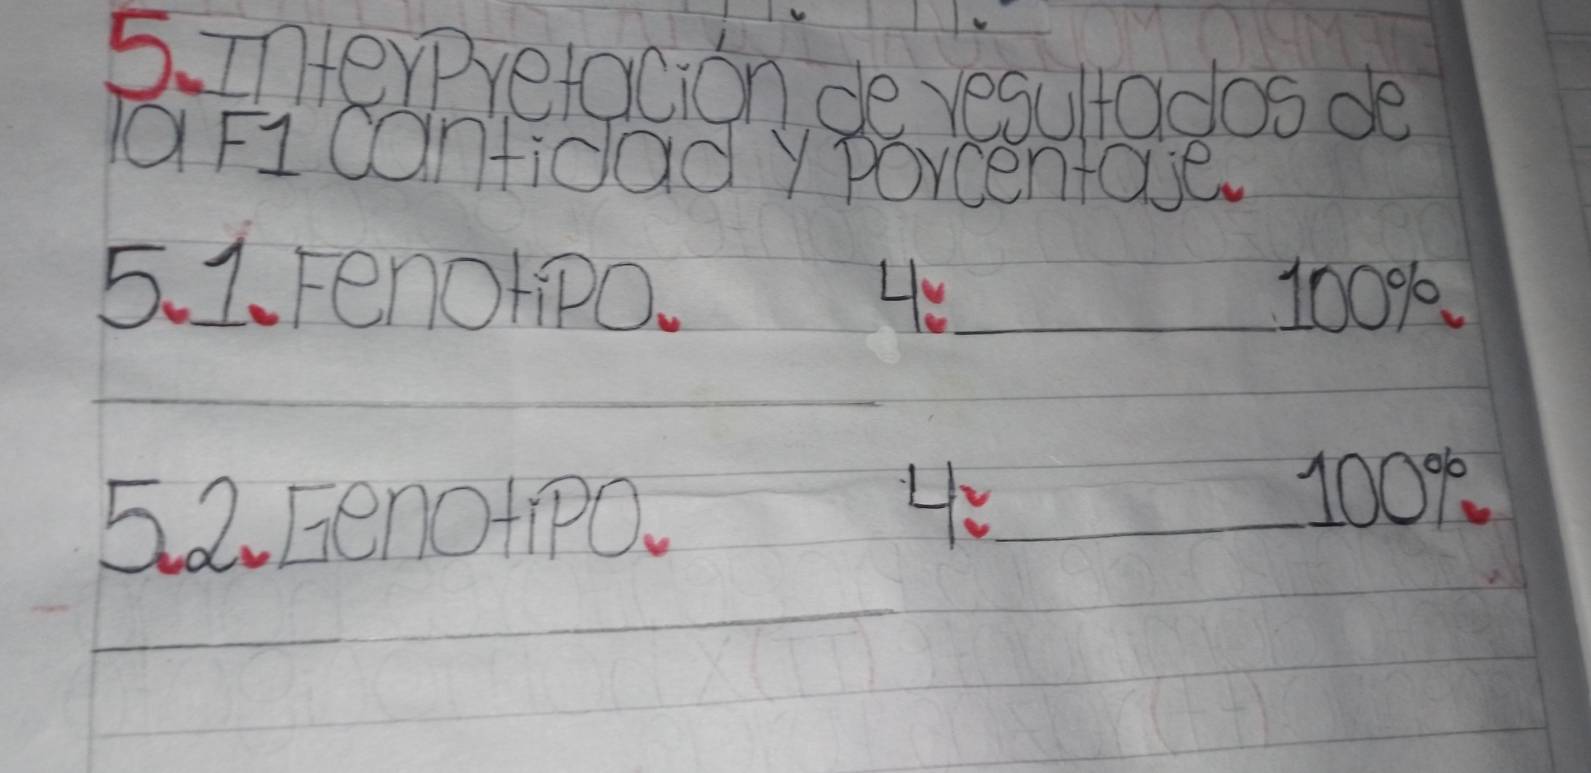 5. Interpretación de resultados de
la F1 cantidad y porcentaje.
5.1. Fenotipo. 4: ________ 100%.
5.2. Genotipo. 4: ________ 100%.